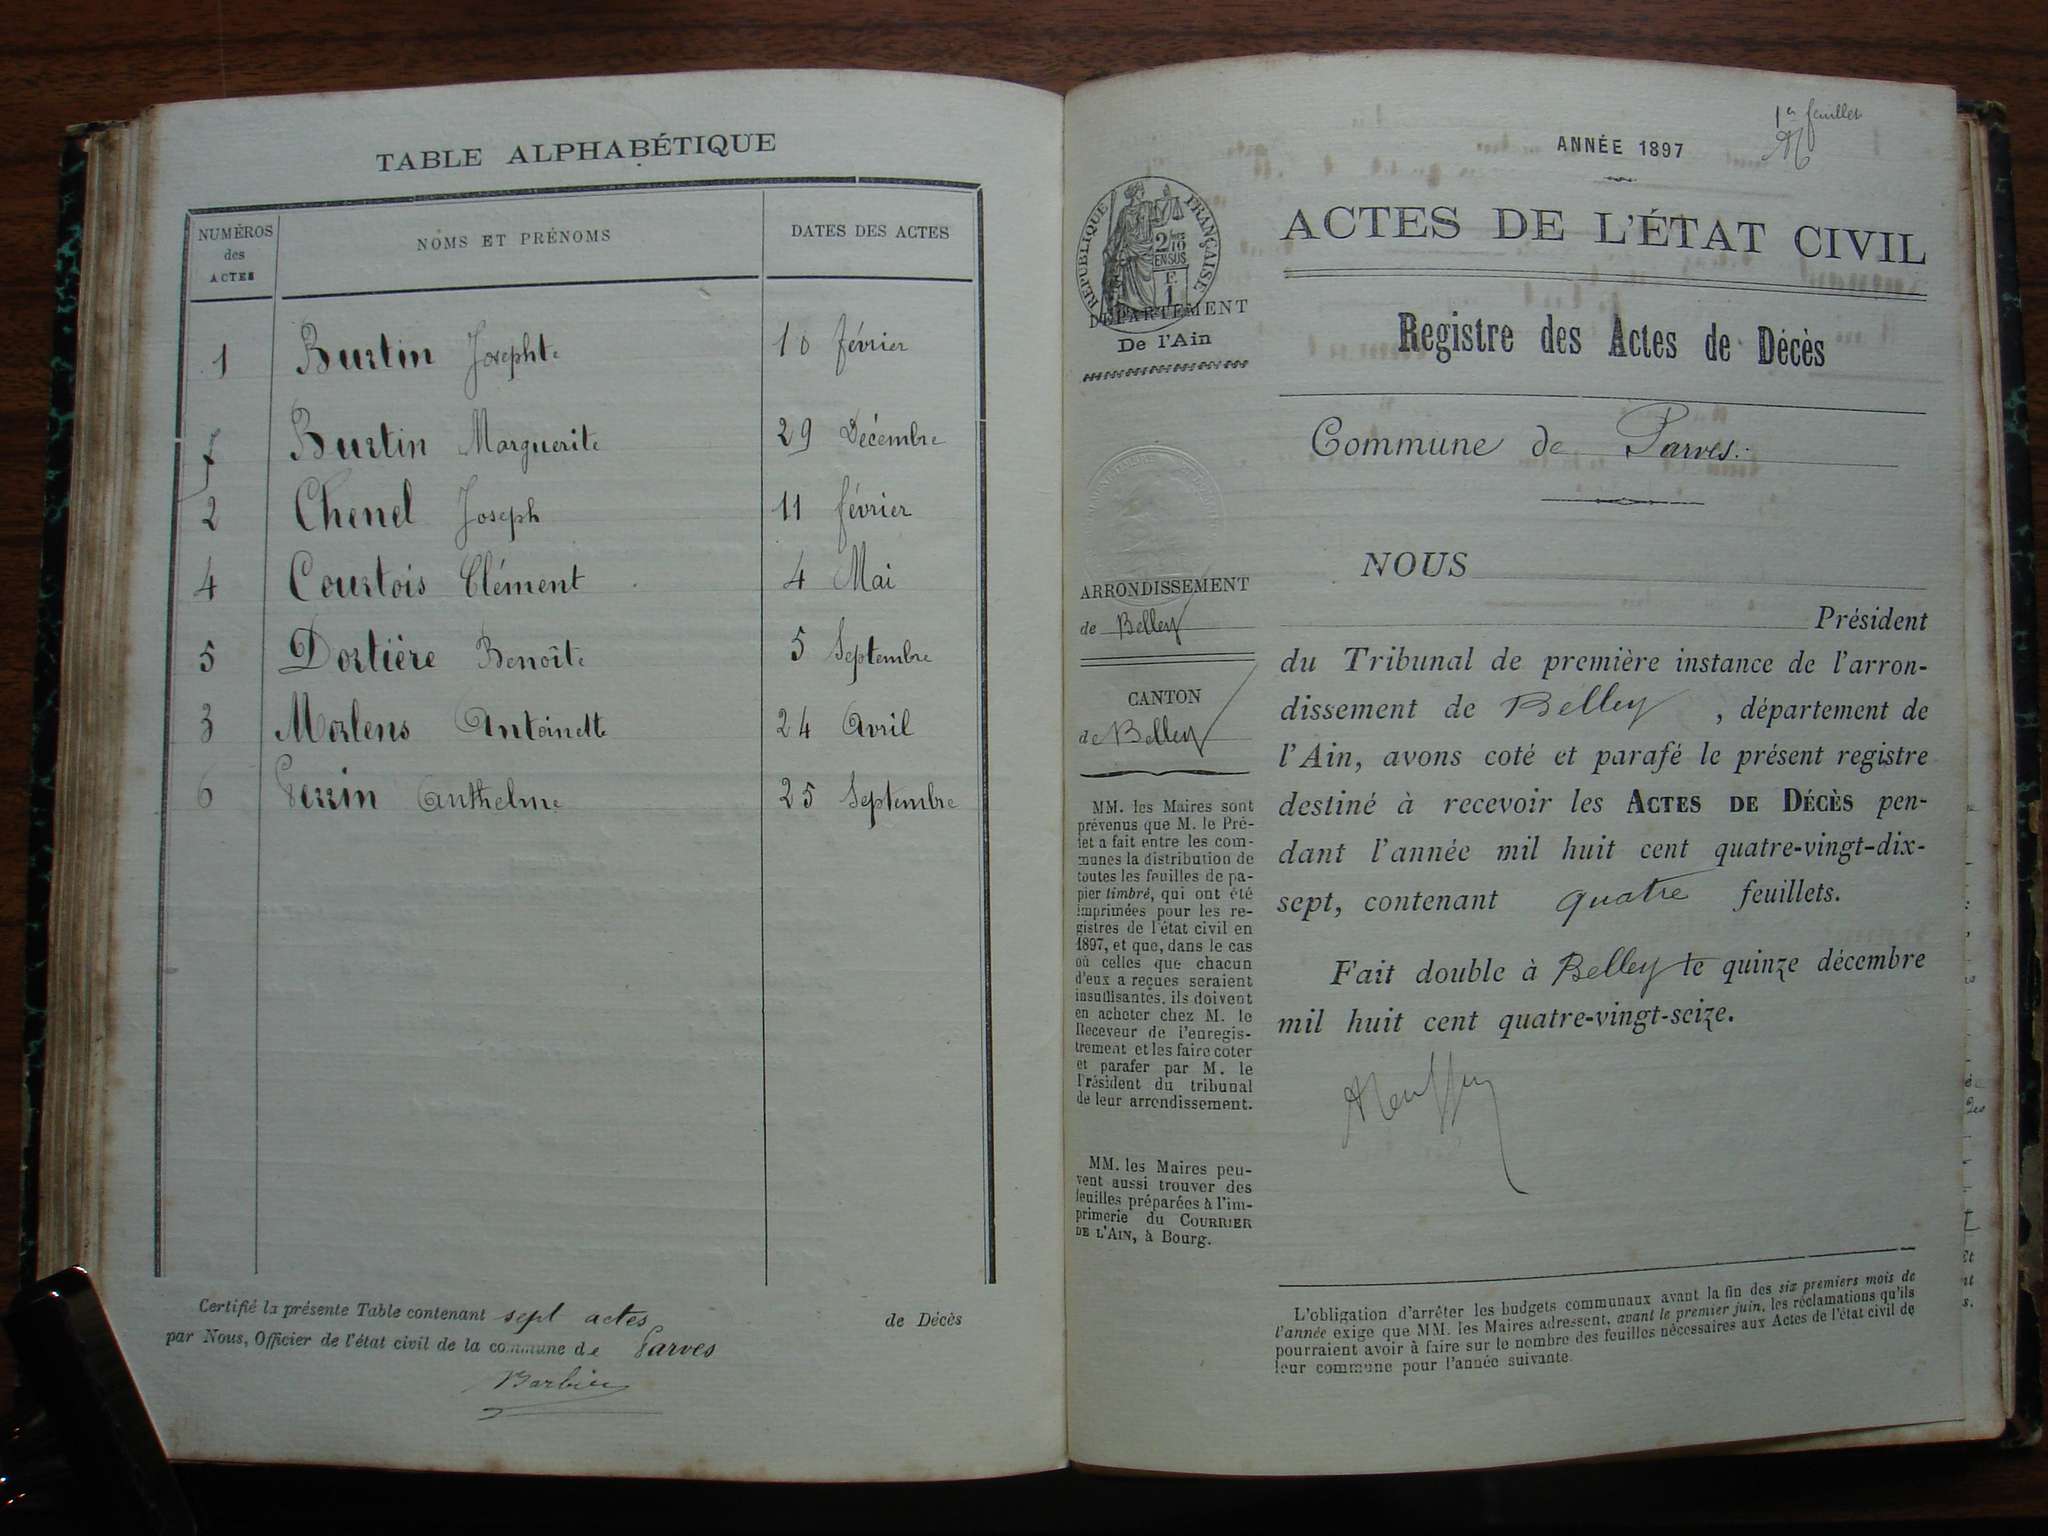 TABLE ALPHABÉTIQUE
NUMÉROS des ACTES
NOMS ET PRÉNOMS
DATES DES ACTES
1 Burtin Josephte 10 février
7 Burtin Marguerite 29 Décembre
2 Chenel Joseph 11 février
4 Courtois Clément 4 Mai
5 Dortière Benoîte 5 Septembre
3 Morlens Antoinette 24 Avril
6 Perrin Anthelme 25 Septembre
Certifié la présente Table contenant sept actes de Décès
par Nous, Officier de l'état civil de la commune de Parves
Barbier
1er feuillet
ANNÉE 1897
RÉPUBLIQUE FRANÇAISE
2/10 EN SUS
F. 1
DÉPARTEMENT
De l'Ain
ARRONDISSEMENT
de Belley
CANTON
de Belley
MM. les Maires sont
prévenus que M. le Pré-
fet a fait entre les com-
munes la distribution de
toutes les feuilles de pa-
pier timbré, qui ont été
imprimées pour les re-
gistres de l'état civil en
1897, et que, dans le cas
où celles que chacun
d'eux a reçues seraient
insuffisantes, ils doivent
en acheter chez M. le
Receveur de l'enregis-
trement et les faire coter
et parafer par M. le
Président du tribunal
de leur arrondissement.
MM. les Maires peu-
vent aussi trouver des
feuilles préparées à l'im-
primerie du COURRIER
DE L'AIN, à Bourg.
ACTES DE L'ÉTAT CIVIL
Registre des Actes de Décès
Commune de Parves.
NOUS
Président
du Tribunal de première instance de l'arron-
dissement de Belley, département de
l'Ain, avons coté et parafé le présent registre
destiné à recevoir les ACTES DE DÉCÈS pen-
dant l'année mil huit cent quatre-vingt-dix-
sept, contenant quatre feuillets.
Fait double à Belley le quinze décembre
mil huit cent quatre-vingt-seize.
L'obligation d'arrêter les budgets communaux avant la fin des six premiers mois de
l'année exige que MM. les Maires adressent, avant le premier juin, les réclamations qu'ils
pourraient avoir à faire sur le nombre des feuilles nécessaires aux Actes de l'état civil de
leur commune pour l'année suivante.